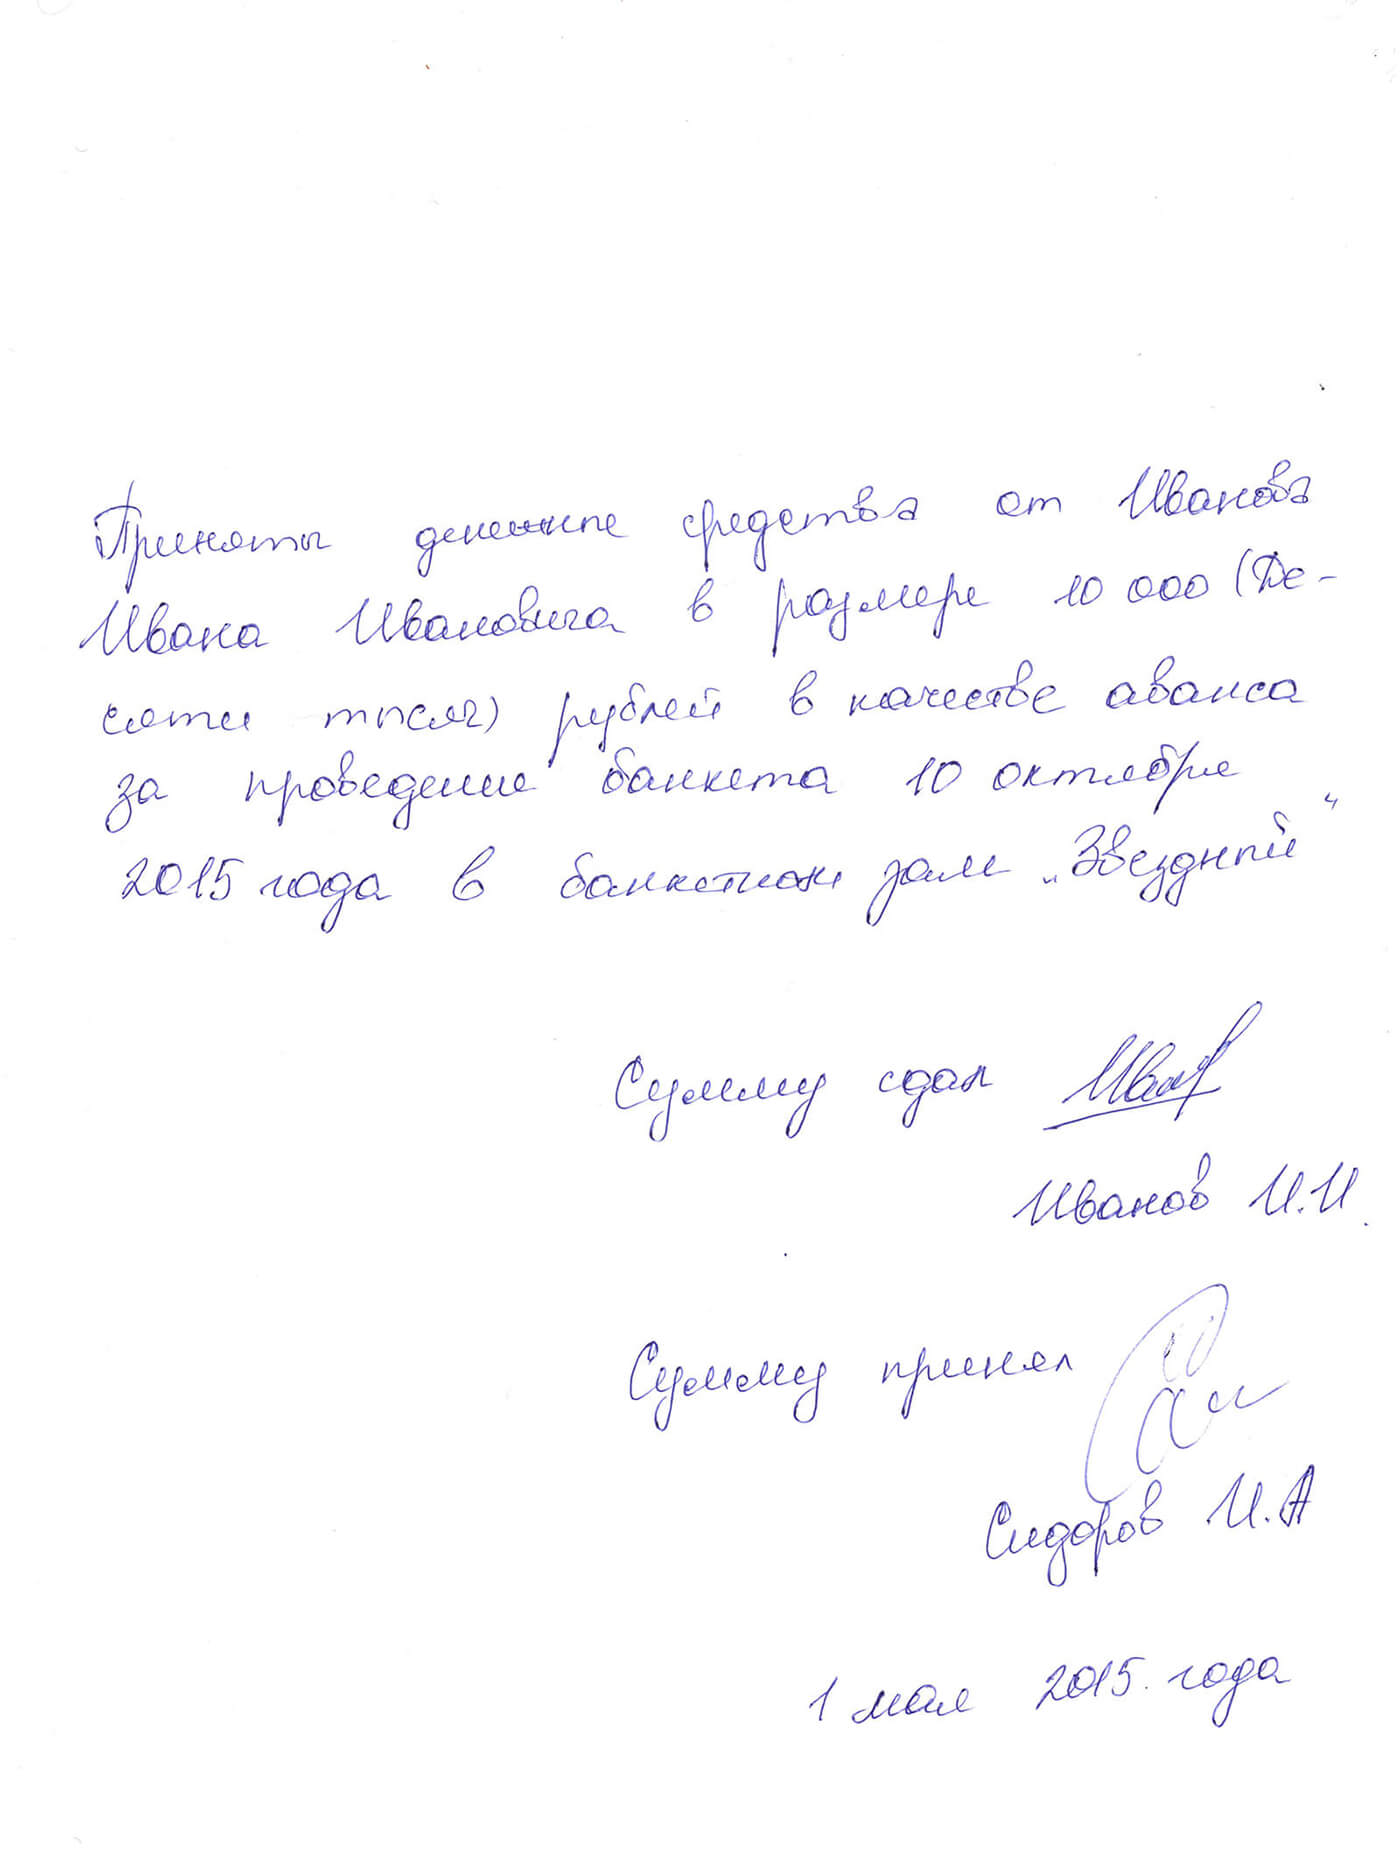 Приняты денежные средства от Иванова
Ивана Ивановича в размере 10 000 (Де-
сяти тысяч) рублей в качестве аванса
за проведение банкета 10 октября
2015 года в банкетном зале „Звездный“
Сумму сдал
Иванов И.И.
Сумму принял
Сидоров И.А
1 мая 2015. года